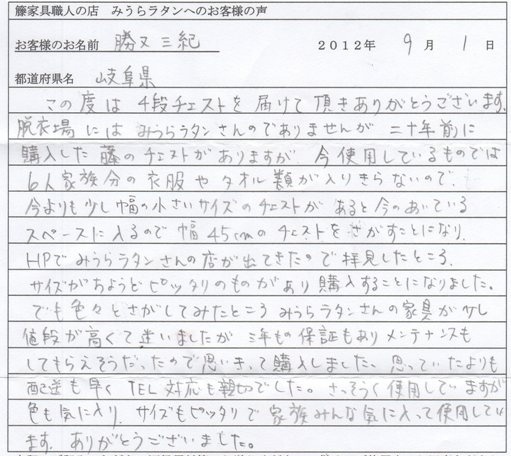 籐家具職人の店 みうらラタンへのお客様の声
お客様のお名前 勝又 三紀 2012年 9月 1日
都道府県名 岐阜県
この度は 4段チェストを 届けて 頂きありがとうございます。
脱衣場には みうらラタンさんのでありませんが 二十年前に
購入した 藤のチェストがありますが 今使用しているものでは
6人家族分の 衣服や タオル類が入りきらないので、
今よりも少し幅の小さいサイズのチェストが あると今のあいている
スペースに入るので 幅45cmの チェストを さがすことになり、
HPでみうらラタンさんの店が出てきたので拝見したところ、
サイズがちょうどピッタリのものがあり購入することになりました。
でも色々とさがしてみたところ みうらラタンさんの家具が少し
値段が高くて迷いましたが 三年もの保証もありメンテナンスも
してもらえそうだったので思いきって購入しました。思っていたよりも
配送も早く TEL対応も親切でした。さっそく使用していますが
色も気に入り、サイズもピッタリで家族みんな気に入って使用してい
ます。ありがとうございました。